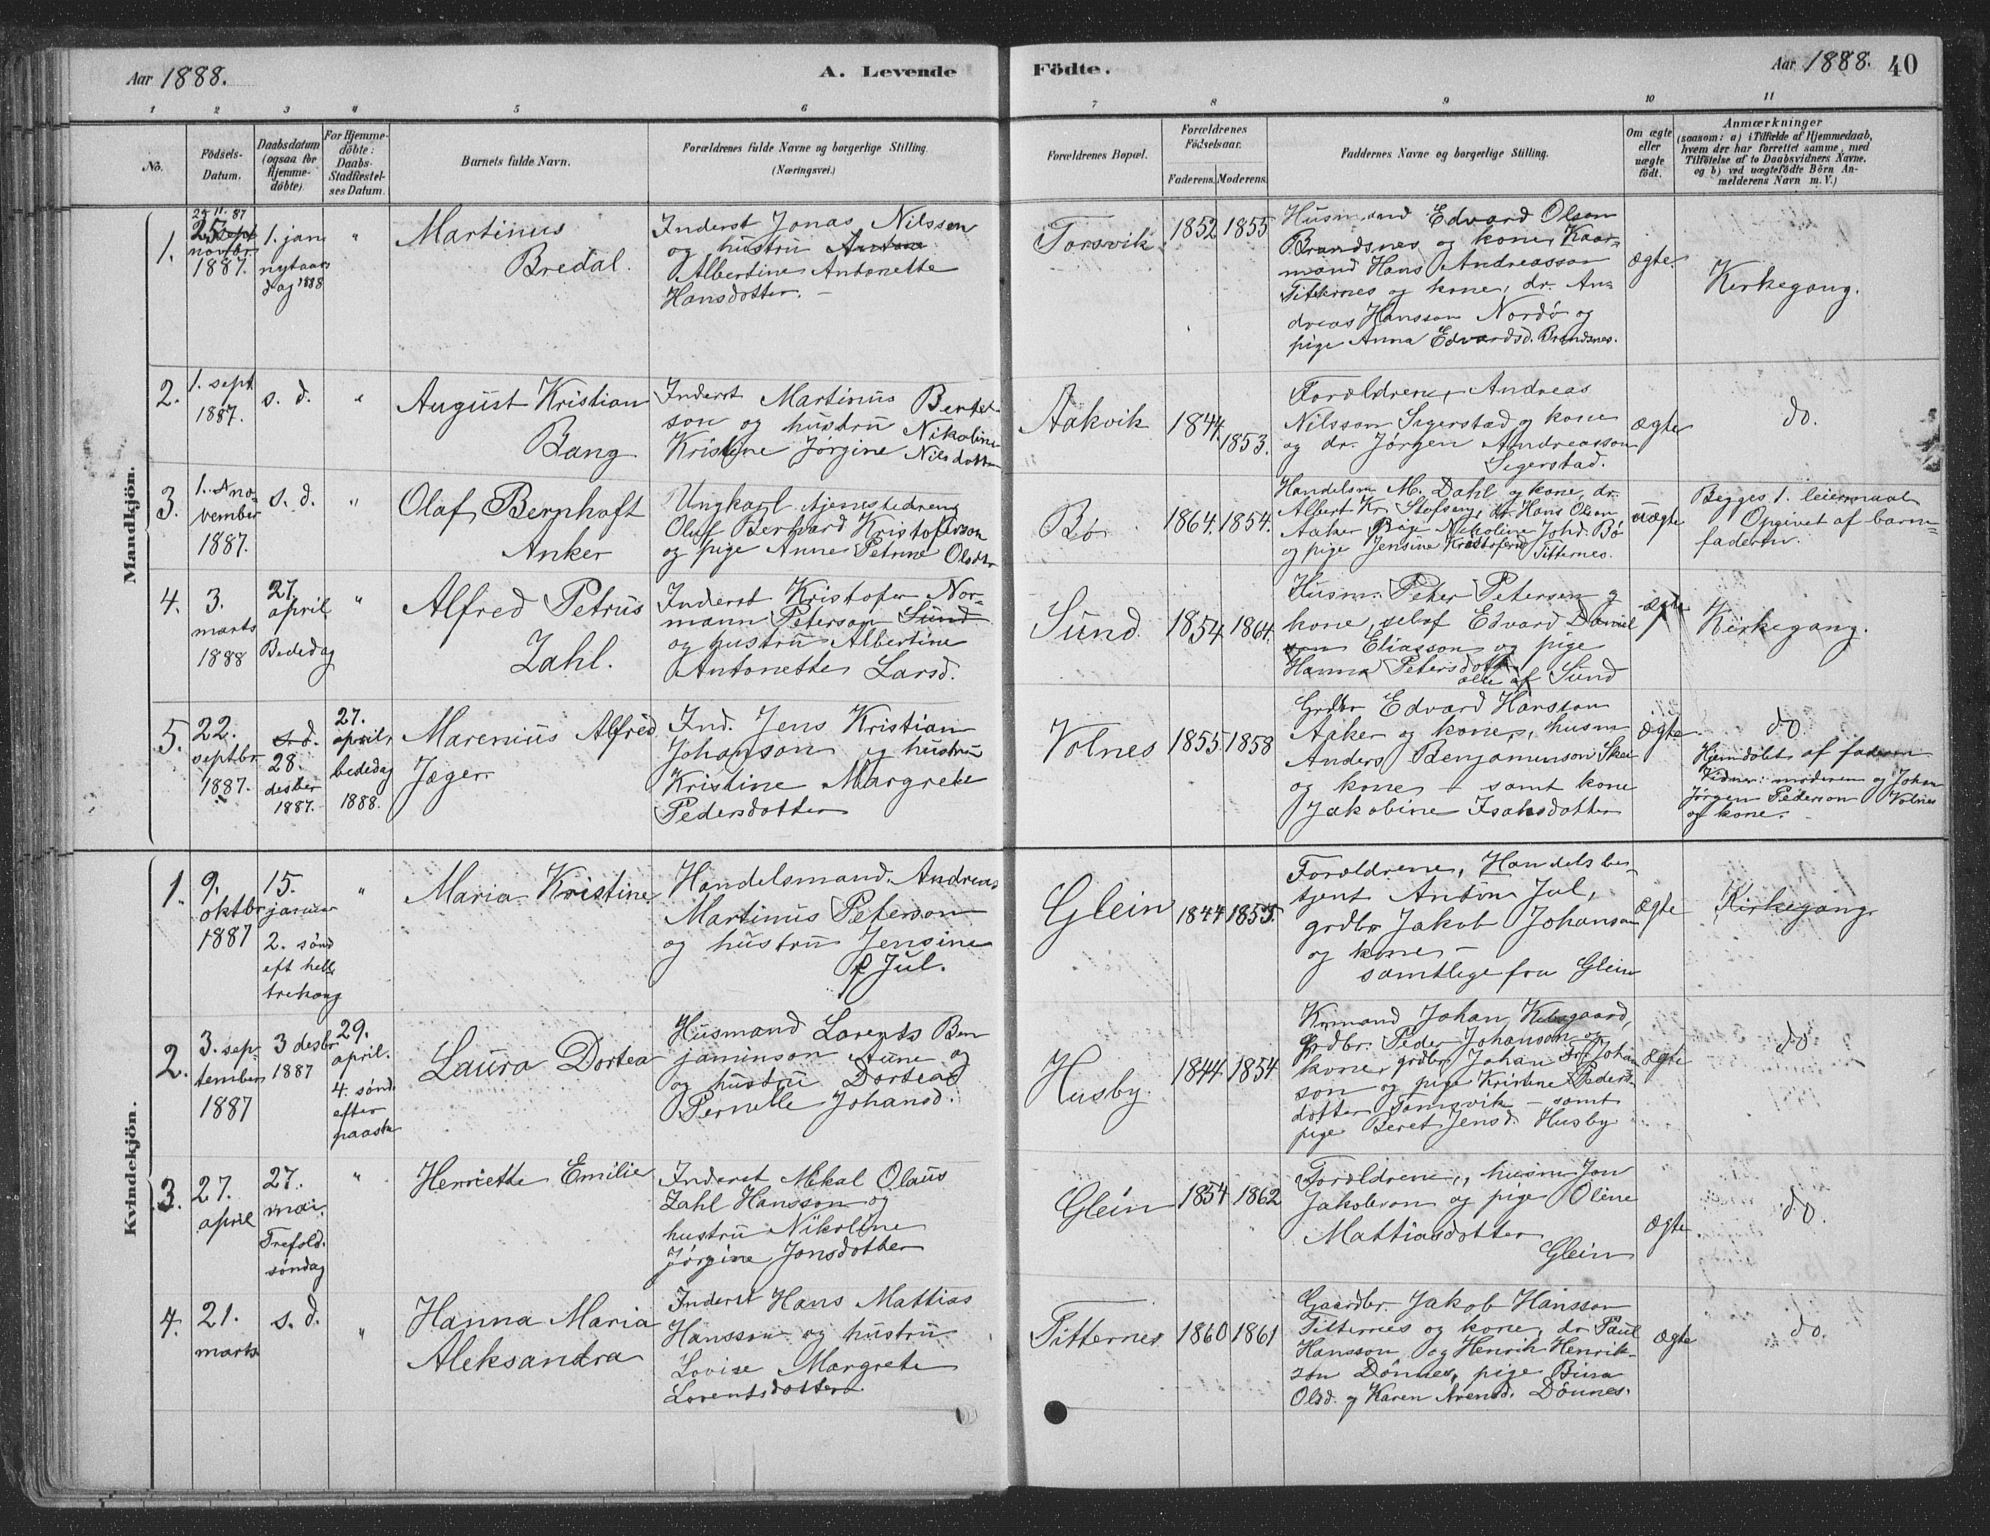 Aar 1888.
A. Levende
Födte.
Aar 1888.
40
1 2 3 4 5 6 7 8 9 10 11
No.
Födsels-
Datum.
Daabsdatum
(ogsaa for
Hjemme-
döbte).
For Hjemme-
döbte:
Daabs-
Stadfæstel-
ses Datum.
Barnets fulde Navn.
Forældrenes fulde Navne og borgerlige Stilling.
(Næringsvei.)
Forældrenes Bopæl.
Forældrenes
Födselsaar.
Faderens. Moderens.
Faddernes Navne og borgerlige Stilling.
Om ægte
eller
uægte
födt.
Anmærkninger
(saasom: a) i Tilfælde af Hjemmedaab,
hvem der har forrettet samme, med
Tilföielse af to Daabsvidners Navne.
og b) ved uægtefödte Börn An-
melderens Navn m. V.)
Mandkjön.
1.
25 11. 87
25 sept
novbr
1887.
1. jan
nytaars
dag 1888
"
Martinus
Bredal.
Inderst Jonas Nilsson
og hustru
Albertine Antonette
Hansdotter. –
Torsvik
1852
1855
Husmand Edvard Olson
Brandsnes og kone, Kaar-
mand Hans Andreasson
Titternes og kone, dr. An-
dreas Hansson Nordø og
pige Anna Edvardsd. Brandsnes.
ægte.
Kirkegang.
2.
1. sept
1887.
s. d.
"
August Kristian
Bang
Inderst Martinus Bertel-
son og hustru Nikoline
Kristine Jørgine Nilsdotter
Aakvik
1844
1853.
Forældrene, Andreas
Nilsson Segerstad og kone
og dr. Jørgen Andreasson
Segerstad.
ægte
do.
3.
1. no-
vember
1887.
s. d.
"
Olaf Bernhoft
Anker
Ungkarl tjenestedreng
Olaf Berhard Kristoferson
og pige Anne Petrine Olsdtr
Bø
1864.
1854.
Handelsm. M. Dahl og kone, dr.
Albert Kr. Stefsen, dr. Hans Olsen
Aaker Pige Nikoline Johd. Bø
og pige Jensine Kristoferd Titternes.
uægte
Begges 1. leiermaal
Opgivet af barne-
faderen.
4.
3.
marts
1888
27.
april
Bededag
"
Alfred Petrus
Zahl.
Inderst Kristofer Nor-
mann Peterson Sund
og hustru Albertine
Antonette Larsd.
Sund.
1854
1864.
Husm. Peter Petersen og
kone, selof Edvard Daniel
son Eliasson og pige
Hanna Petersdotter
alle af Sund
ægte
Kirkegang.
5.
22.
septbr
1887.
s. d.
28.
desbr
1887.
27.
april,
bededag
1888.
Marenius Alfred
Jæger
Ind. Jens Kristian
Johanson og hustru
Kristine Margrete
Pedersdotter
Volnes
1855
1858
Grdbr Edvard Hansson
Aaker og kone, husm
Anders Benjaminson Skei
og kone – samt kone
Jakobine Isaksdotter
ægte
do
Hjemdøbt af faderen
Vidner: moderen og Johan
Jørgen Pederson Volnes
og kone.
Kvindekjön.
1.
9.
oktbr
1887
15.
januar
2. sønd
eft hell
trekong
"
Maria Kristine
Handelsmand Andreas
Martinus Peterson
og hustru Jensine
f Jul.
Glein
1844
1855.
Forældrene, Handelsbe-
tjent Anton Jul,
grdbr Jakob Johanson
og kone –
samtlige fra Glein
ægte
Kirkegang
2.
3. sep-
tember
1887
3 desbr
1887
29.
april.
4. sønd.
efter
paaske
Laura Dortea
Husmand Lorents Ben
jaminson Aune og
og hustru Dortea
Pernelle Johansd.
Husby.
1844
1854
Krmand Johan,
Grdbr. Peder Johanson og
kone, grdbr Johan Fr. Johan
son og pige Kristine Peders-
dotter Tomsvik – samt
pige Beret Jensd. Husby
ægte
do
3.
27.
april
27.
mai,
Trefold.
søndag
"
Henriette Emilie
Inderst Mikal Olaus
Zahl Hansson og
hustru Nikoline
Jørgine Jonsdotter
Glein
1854
1862
Forældrene, husm Jon
Jakobson og pige Oline
Mattiasdotter
Glein
ægte
do.
4.
21.
marts
s. d.
"
Hanna Maria
Aleksandra
Inderst Hans Mattias
Hansson og hustru
Lovise Margrete
Lorentsdotter
Titternes
1860
1861
Gaardbr. Jakob Hansson
Titternes og kone, dr Paul
Hansson og Henrik Henrik-
son Dønnes, pige
Olsd. og Karen Arensd. Dønnes.
ægte
do.